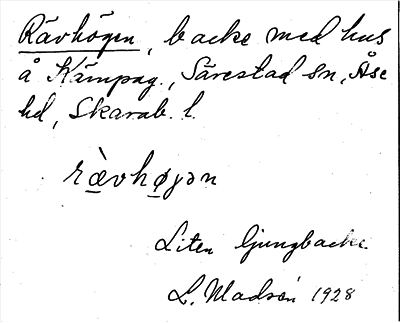 Rävhögen, backe med hus
å Kämpag., Särestad sn, Åse
hd, Skarab. l.
ràvhøgən
Liten ljungbacke
L. Madsén 1928